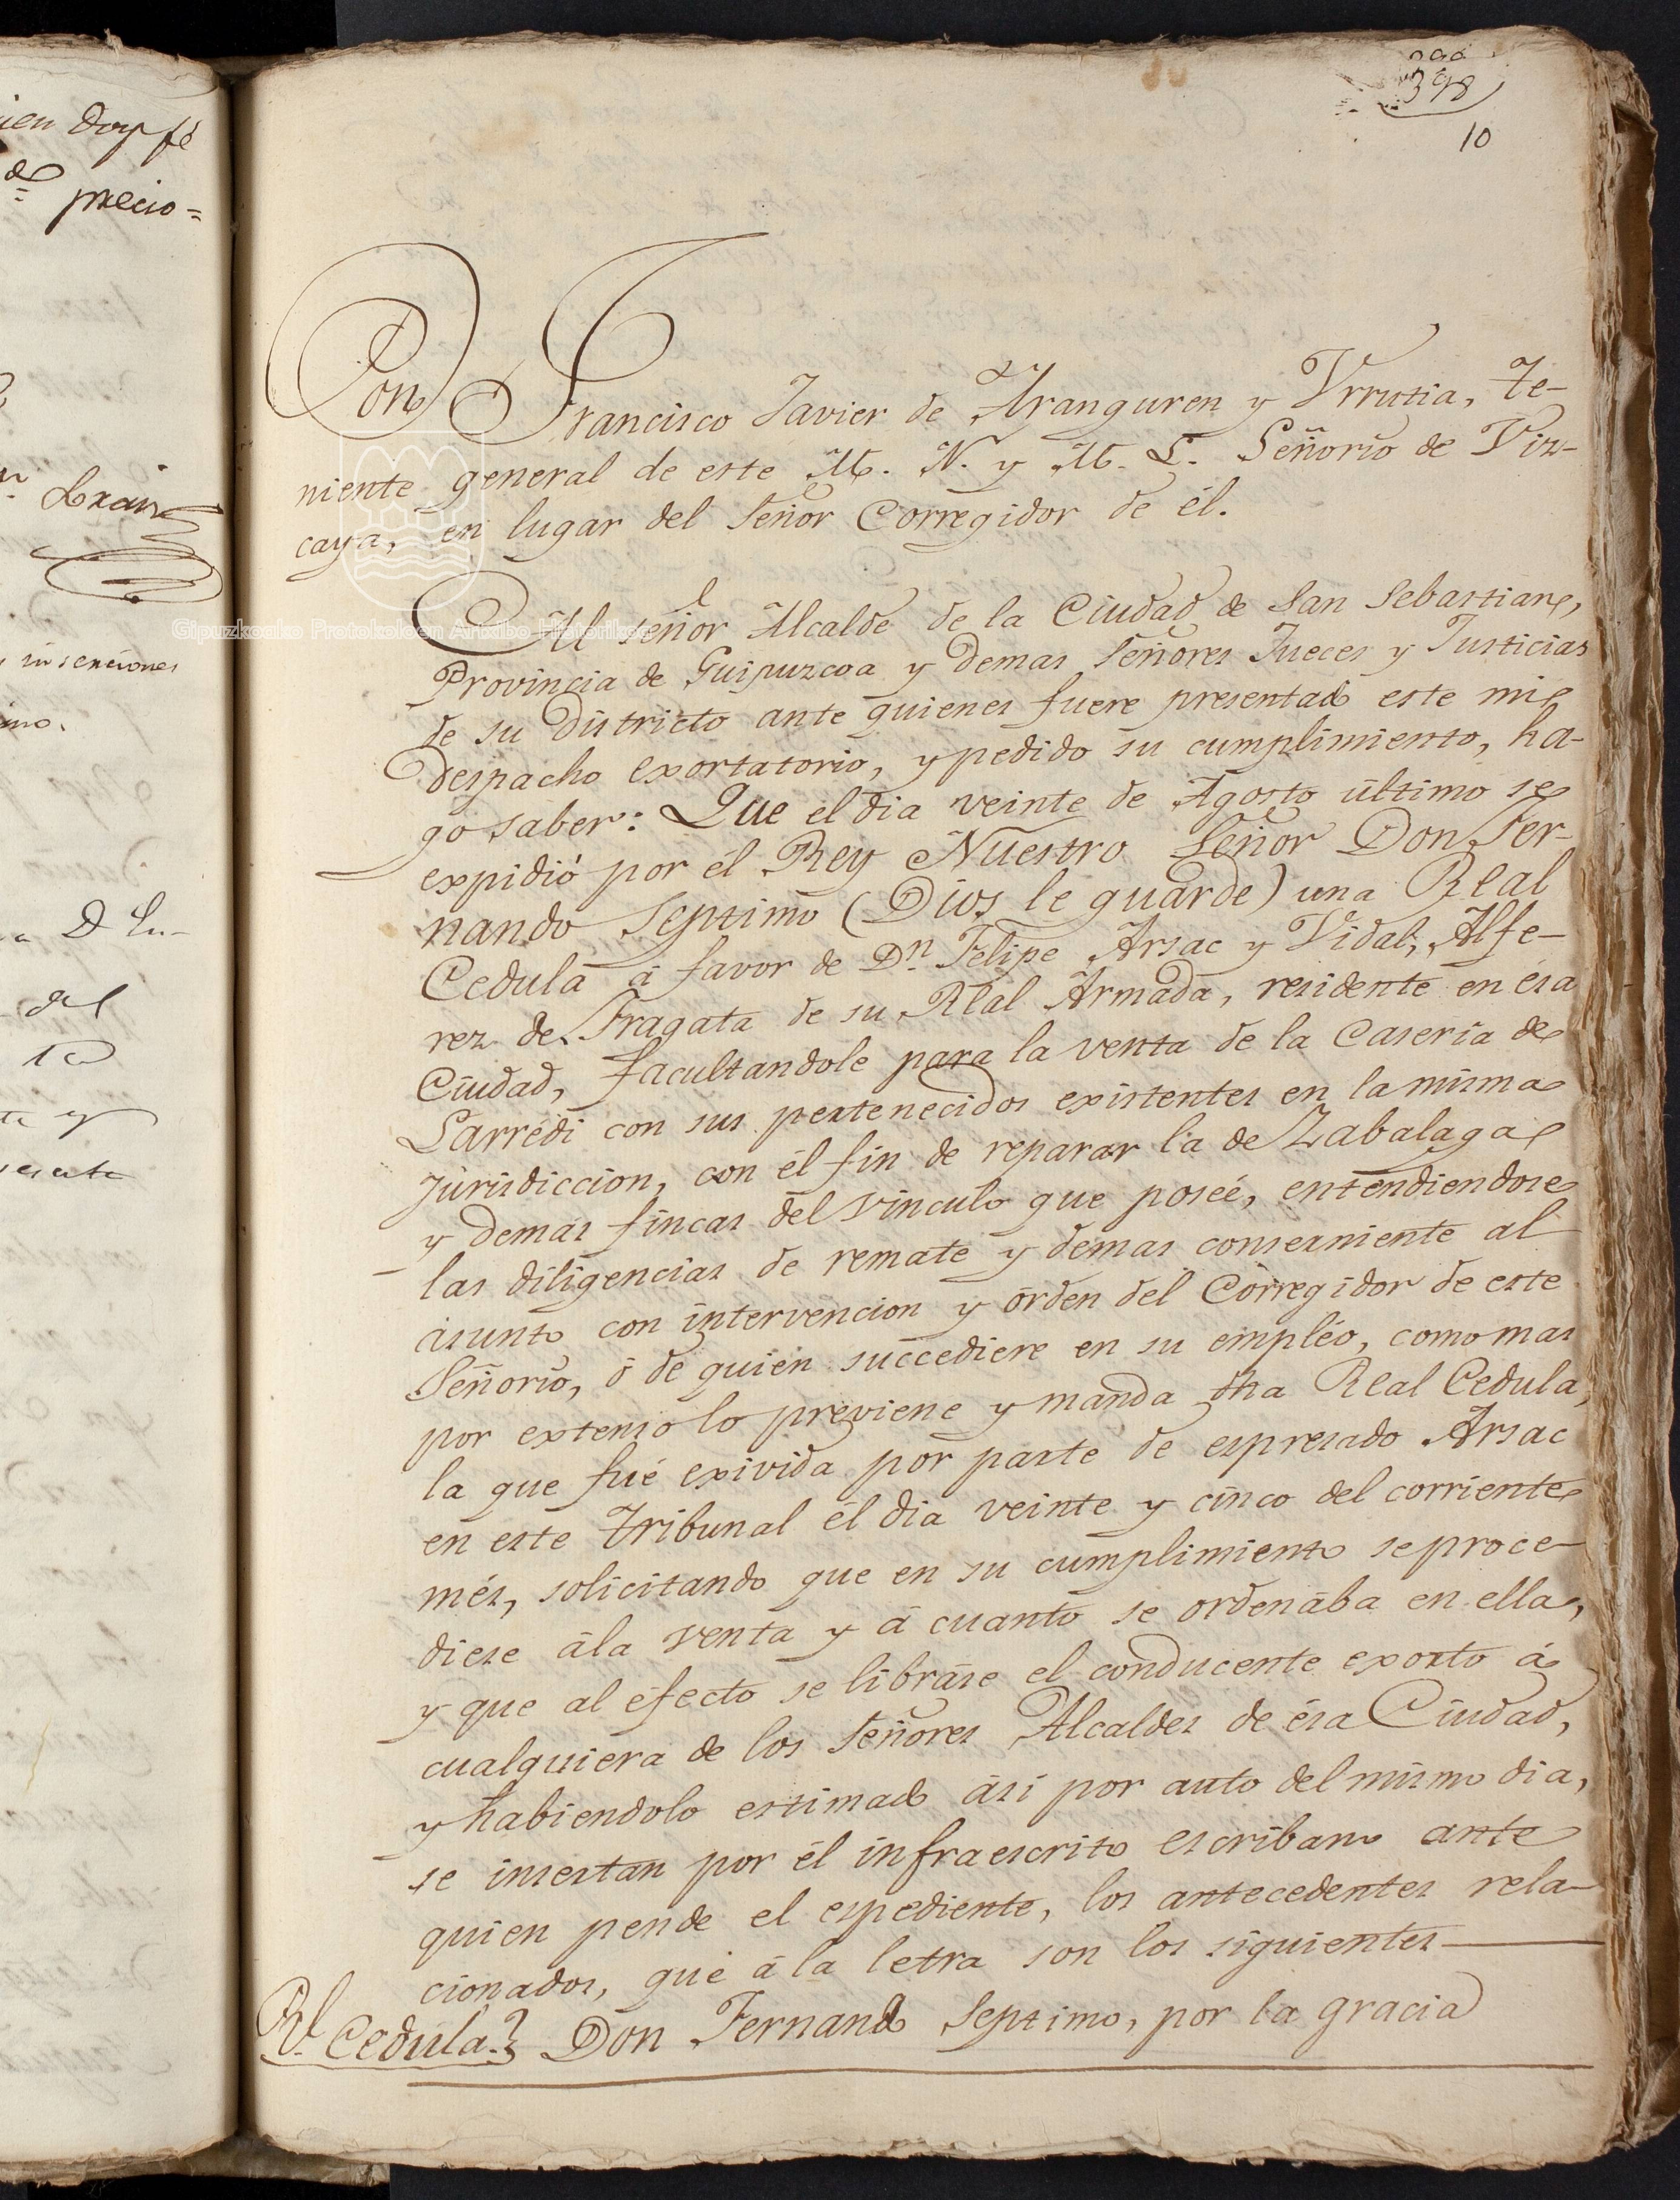 ien doy fé
precio=
inserciones
del
398
10
Don Francisco Javier de Aranguren y Vrrutia, Te-
niente general de este M. N. y M. L. Señorio de Viz-
caya, en lugar del Señor Corregidor de él.
Al señor Alcalde de la Ciudad de San Sebastian,
Provincia de Guipuzcoa y demas Señores Jueces y Justicias
de su districto ante quienes fuere presentado este mi
despacho exortatorio, y pedido su cumplimiento, ha-
go saber: Que el dia veinte de Agosto último se
expidió por él Rey Nuestro Señor Don Fer-
nando Septimo (Dios le guarde) una Real
Cedula á favor de Dn. Felipe Arsac y Vidal, Alfe-
rez de Fragata de su Real Armada, residente en ésa
Ciudad, facultandole para la venta de la Caseria de
Larredi con sus pertenecidos existentes en la misma
Jurisdiccion, con él fin de reparar la de Zabalaga
y demás fincas del vinculo que poseé, entendiendose
las diligencias de remate y demas conserniente al
asunto con intervencion y órden del Corregidor de este
Señorio, ó de quien succediere en su empléo, como mas
por extenso lo previene y manda dha Real Cedula,
la que fué exivida por parte de espresado Arsac
en este Tribunal él dia veinte y cinco del corriente
més, solicitando que en su cumplimiento se proce-
diese á la venta y á cuanto se ordenaba en ella,
y que al éfecto se libráse el conducente exorto á
cualquiera de los Señores Alcaldes de ésa Ciudad,
y habiendolo estimado ási por auto del mismo dia,
se insertan por él infraescrito escribano ante
quien pende el espediente, los antecedentes rela-
cionados, que á la letra son los siguientes
Rl. Cedula.} Don Fernando Septimo, por la gracia
Gipuzkoako Protokoloen Artxibo Historikoa